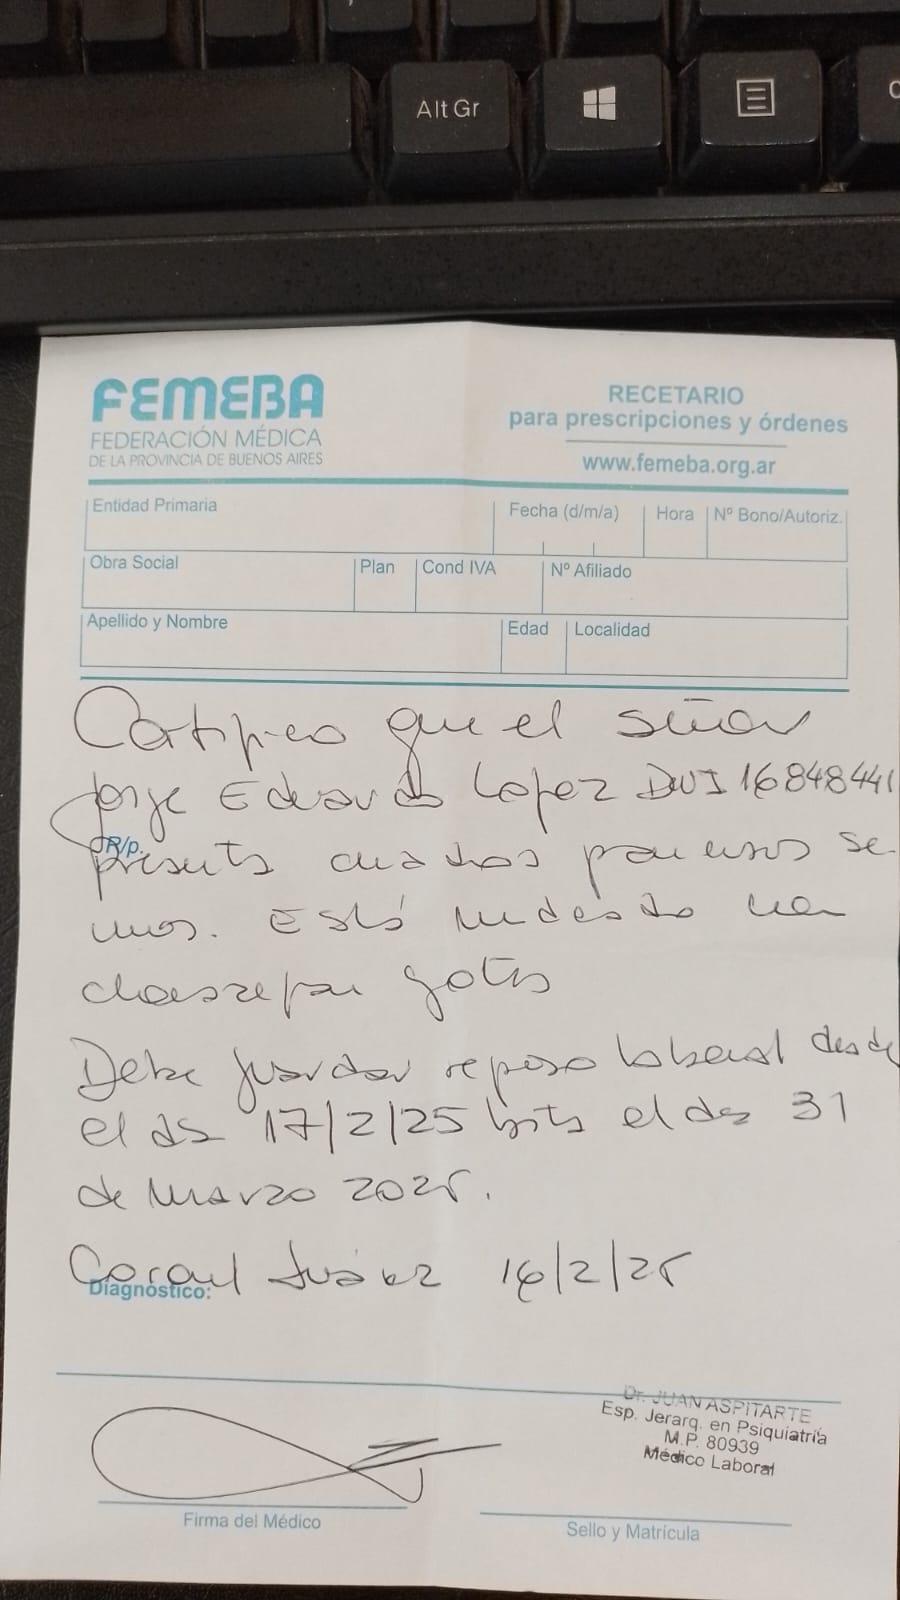 Alt Gr
FEMEBA
FEDERACIÓN MÉDICA
DE LA PROVINCIA DE BUENOS AIRES
RECETARIO
para prescripciones y órdenes
www.femeba.org.ar
Entidad Primaria
Fecha (d/m/a)
Hora
Nº Bono/Autoriz.
Obra Social
Plan
Cond IVA
Nº Afiliado
Apellido y Nombre
Edad
Localidad
Certifico que el señor
Jorge Eduardo Lopez DNI 16848441
R/p.
presenta cuadros
Está
gotas
Debe guardar reposo laboral desde
el día 17/2/25 hasta el día 31
de Marzo 2025.
Coronel Suárez 16/2/25
Diagnóstico:
Dr. JUAN ASPITARTE
Esp. Jerarq. en Psiquiatría
M.P. 80939
Médico Laboral
Firma del Médico
Sello y Matrícula